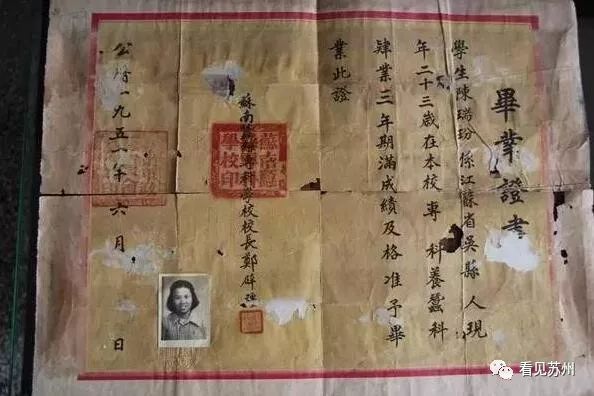 畢業證書
學生陳瑞玢係江蘇省吳縣人現
年二十三歲在本校專科養蠶科
肄業三年期滿成績及格准予畢
業此證
蘇南蠶絲專科學校校長鄭辟疆
公曆一九五一年六月 日
看见苏州